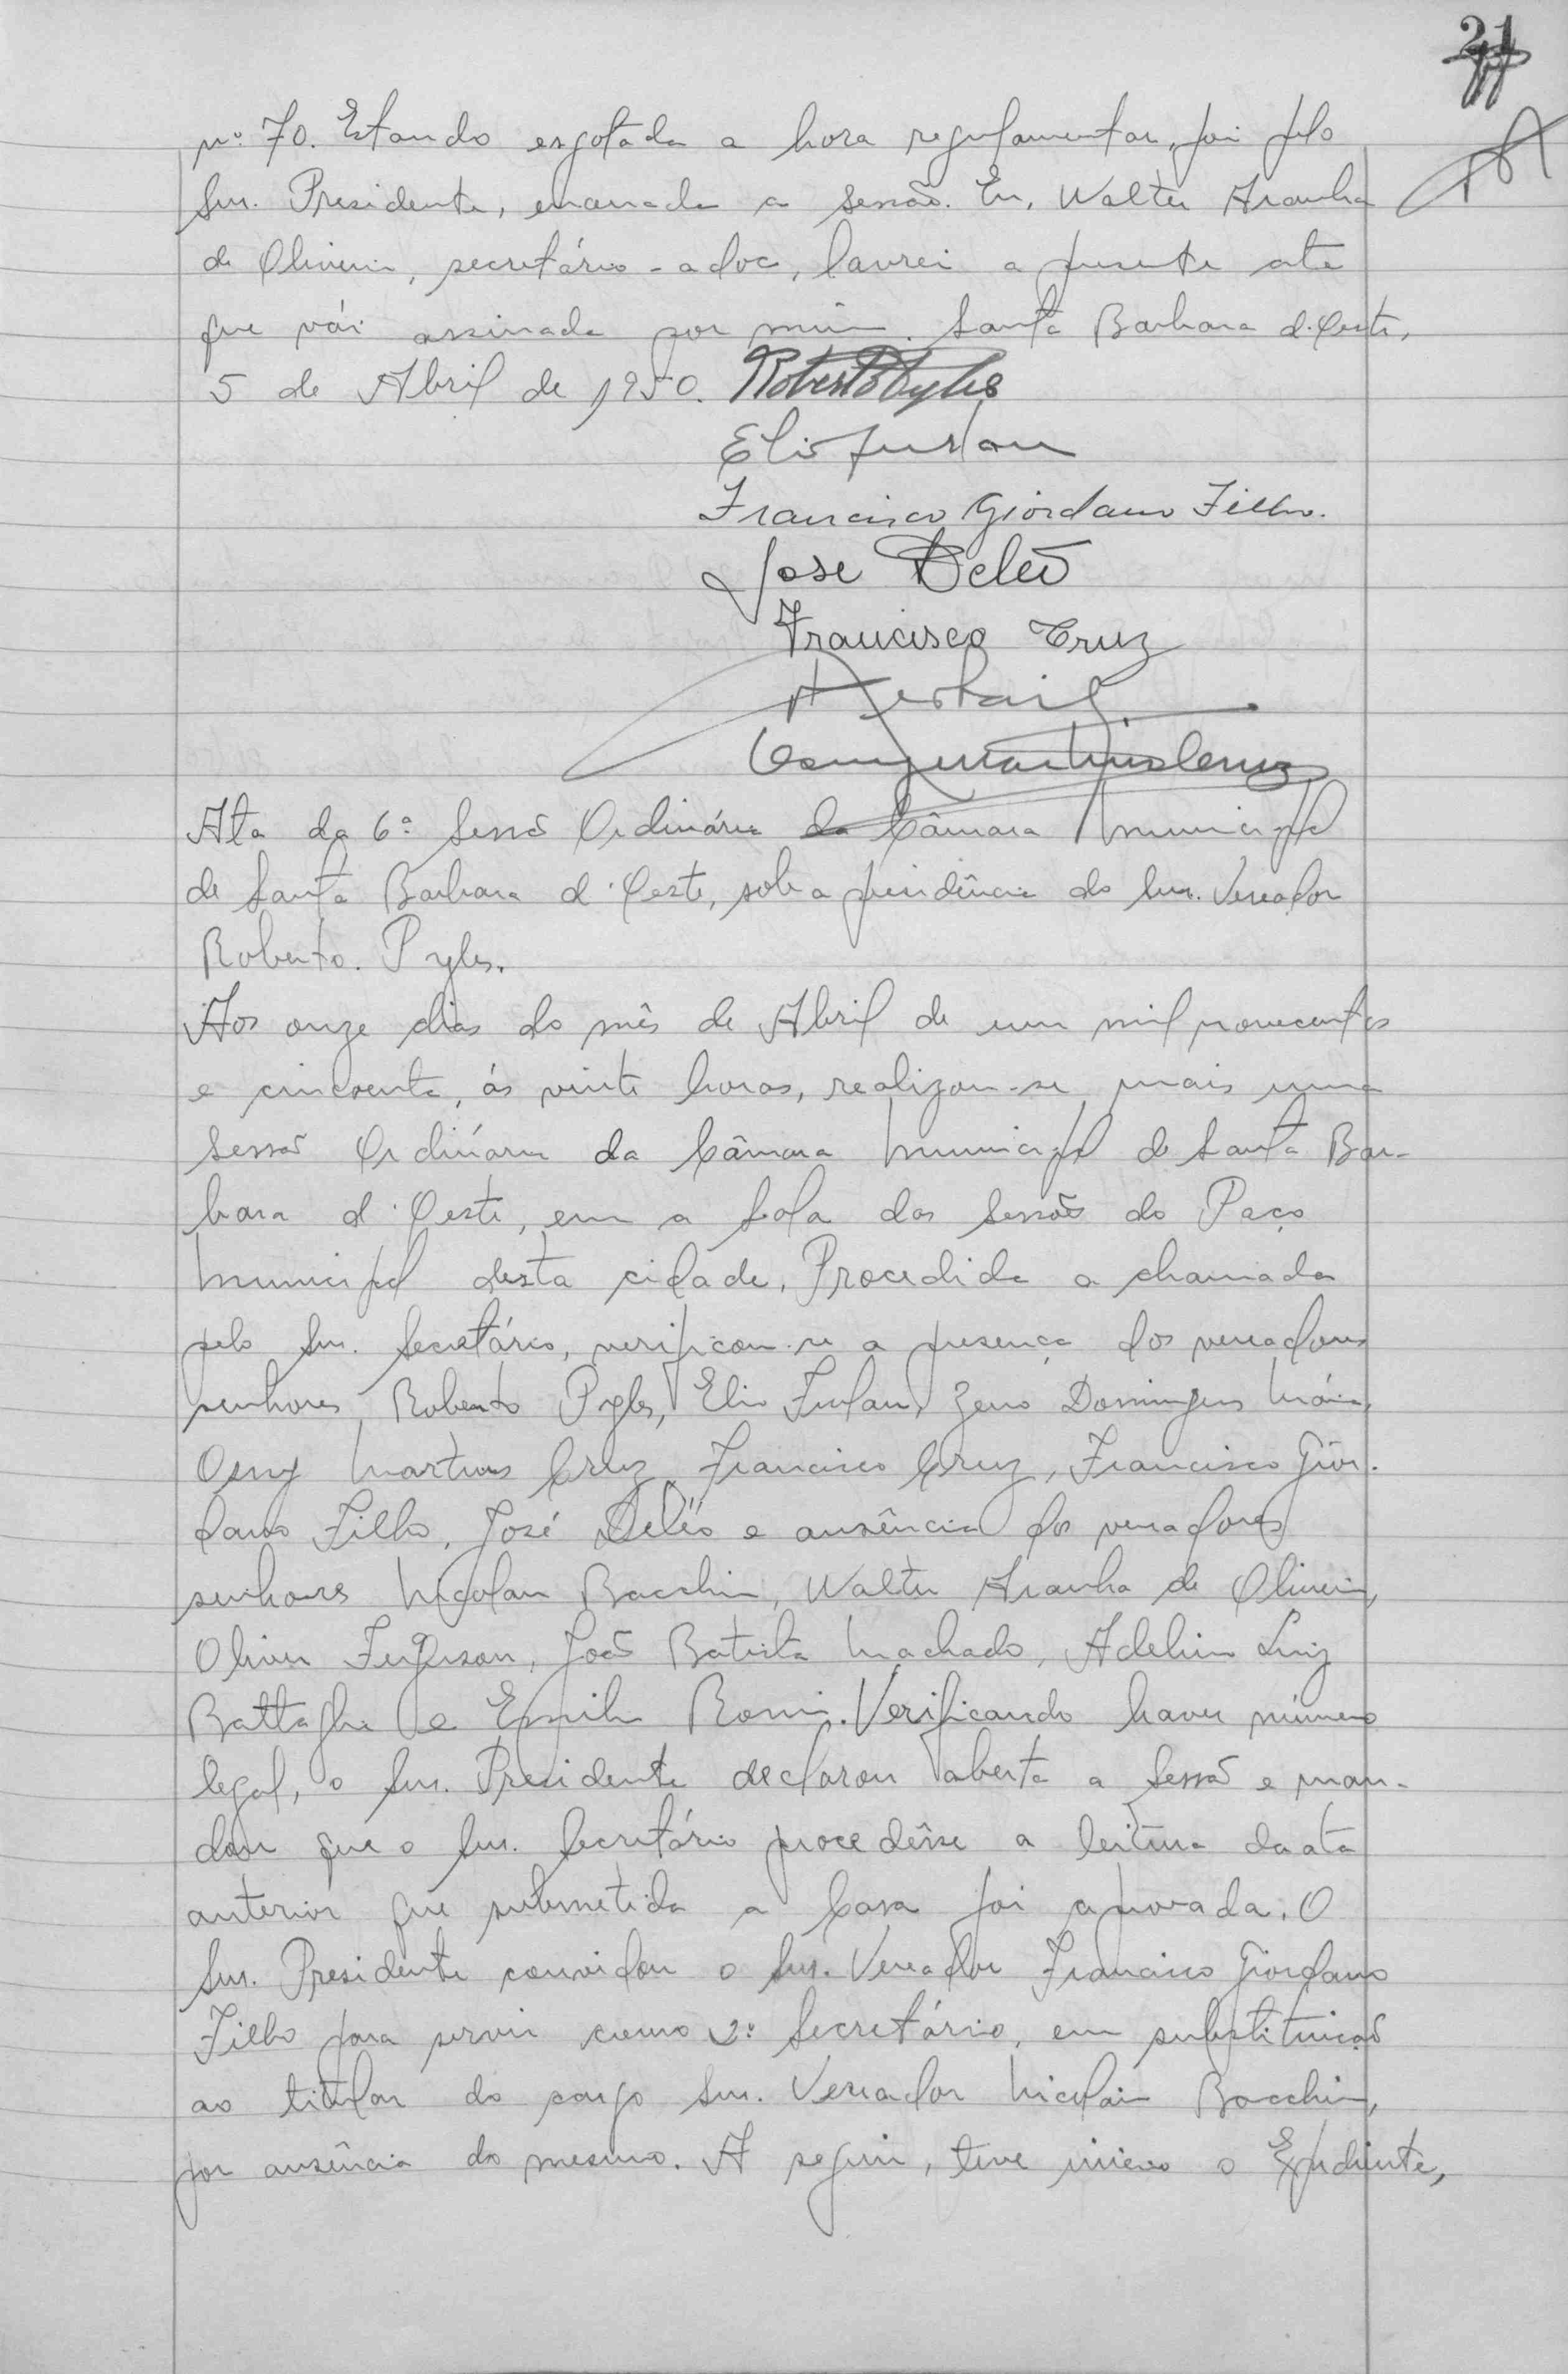 21
nº 70. Estando esgotada a hora regulamentar, foi pelo
Snr. Presidente, encerrada a sessão. Eu, Walter Aranha
de Oliveira, secretário-adoc, lavrei a presente ata
que vái assinada por mim. Santa Barbara d'Oeste,
5 de Abril de 1950. Roberto Pyles
Elio Furlan
Francisco Giordano Filho.
José Deleo
Francisco Cruz
Osny Martins Cruz
Ata da 6ª Sessão Ordinária da Câmara Municipal
de Santa Barbara d'Oeste, sob a presidência do Snr. Vereador
Roberto. Pyles.
Aos onze dias do mês de Abril de um mil novecentos
e cincoenta, ás vinte horas, realizou-se mais uma
sessão Ordinária da Câmara Municipal de Santa Bar-
bara d'Oeste, em a Sala das Sessões do Paço
Municipal desta cidade. Procedida a chamada
pelo Snr. Secretário, verificou-se a presença dos vereadores
senhores, Roberto Pyles, Elio Furlan, Zeno Domingues Máia,
Osny Martins Cruz, Francisco Cruz, Francisco Gior-
dano Filho, José Deléo e ausência dos vereadores
senhores Nicolau Bacchin, Walter Aranha de Oliveira,
Oliver Ferguson, João Batista Machado, Adelino Luiz
Battaglia e Emilio Romi. Verificando haver número
legal, o Snr. Presidente declarou aberta a Sessão e man-
dou que o Snr. Secretário procedêsse a leitura da ata
anterior que submetida a Casa foi aprovada. O
Snr. Presidente convidou o Snr. Vereador Francisco Giordano
Filho para servir como 2º Secretário, em substituição
ao titular do cargo Snr. Vereador Nicolau Bacchin,
por ausência do mesmo. A seguir, teve inicio o Expediente,